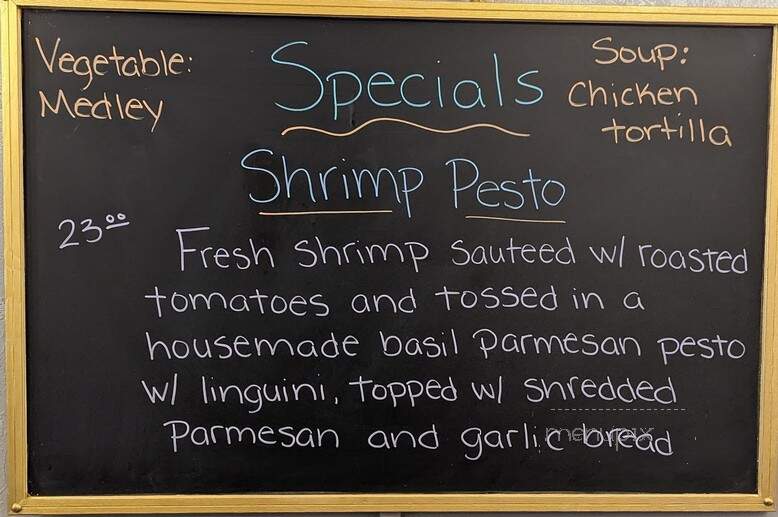 Vegetable:
Medley
Specials
Soup:
Chicken
tortilla
Shrimp Pesto
23⁰⁰
Fresh Shrimp Sauteed w/ roasted
tomatoes and tossed in a
housemade basil Parmesan pesto
w/ linguini, topped w/ shredded
Parmesan and garlic bread
menupix